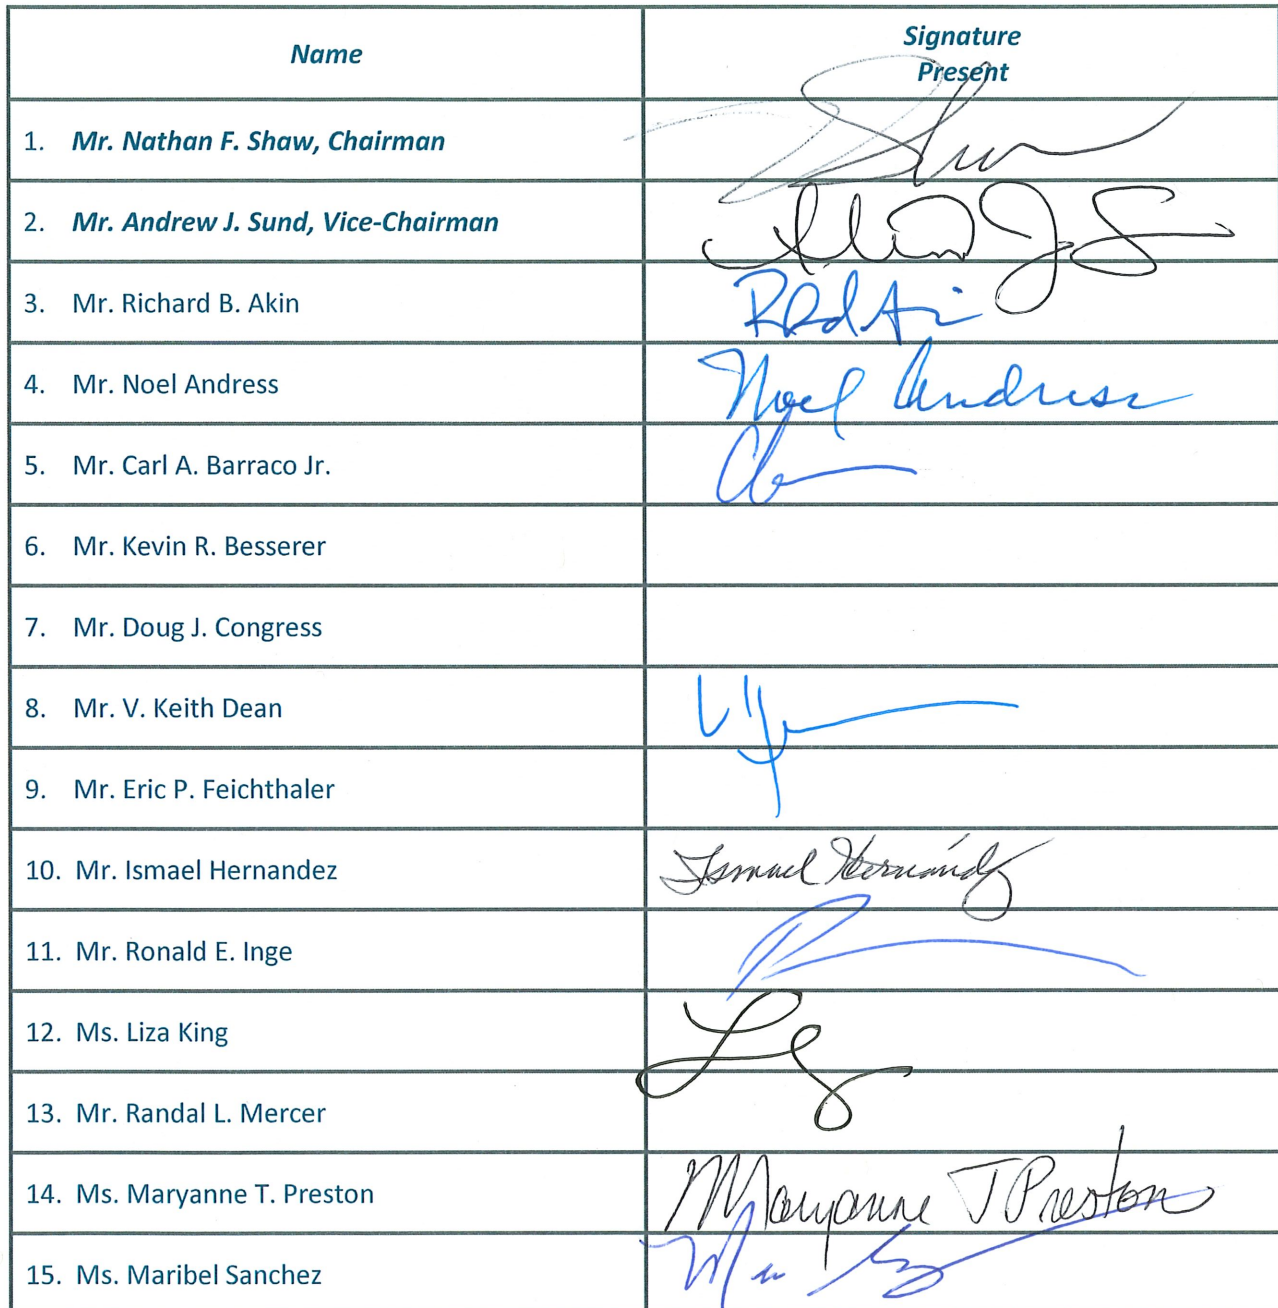 Name Signature
Present
1. Mr. Nathan F. Shaw, Chairman Shaw
2. Mr. Andrew J. Sund, Vice-Chairman
3. Mr. Richard B. Akin
4. Mr. Noel Andress Noel Andress
5. Mr. Carl A. Barraco Jr.
6. Mr. Kevin R. Besserer
7. Mr. Doug J. Congress
8. Mr. V. Keith Dean
9. Mr. Eric P. Feichthaler
10. Mr. Ismael Hernandez Ismael Hernández
11. Mr. Ronald E. Inge
12. Ms. Liza King
13. Mr. Randal L. Mercer
14. Ms. Maryanne T. Preston Maryanne T Preston
15. Ms. Maribel Sanchez